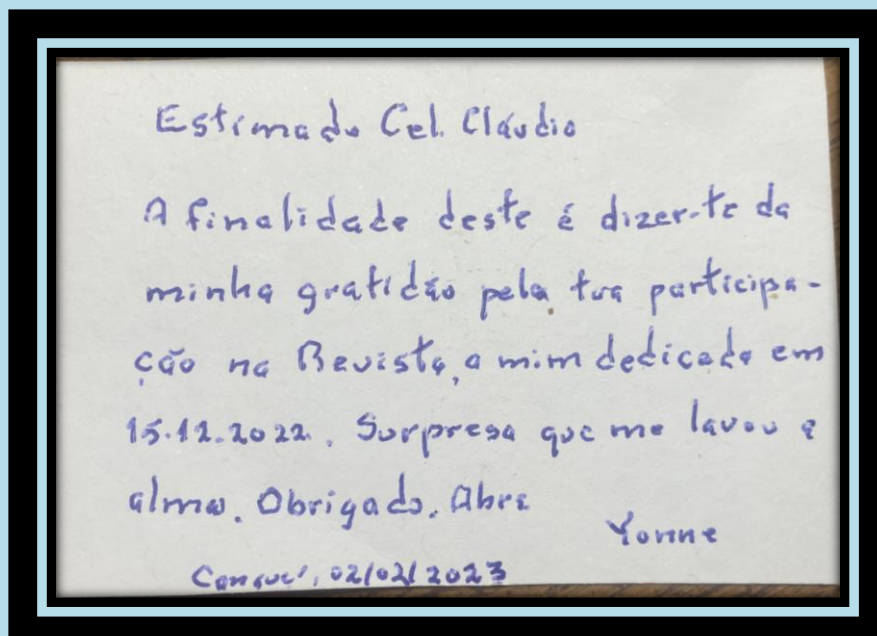 Estimado Cel. Cláudio
A finalidade deste é dizer-te da
minha gratidão pela tua participa-
ção na Revista, a mim dedicada em
15.12.2022. Surpresa que me lavou a
alma. Obrigado. Abrs
Yonne
02/02/2023